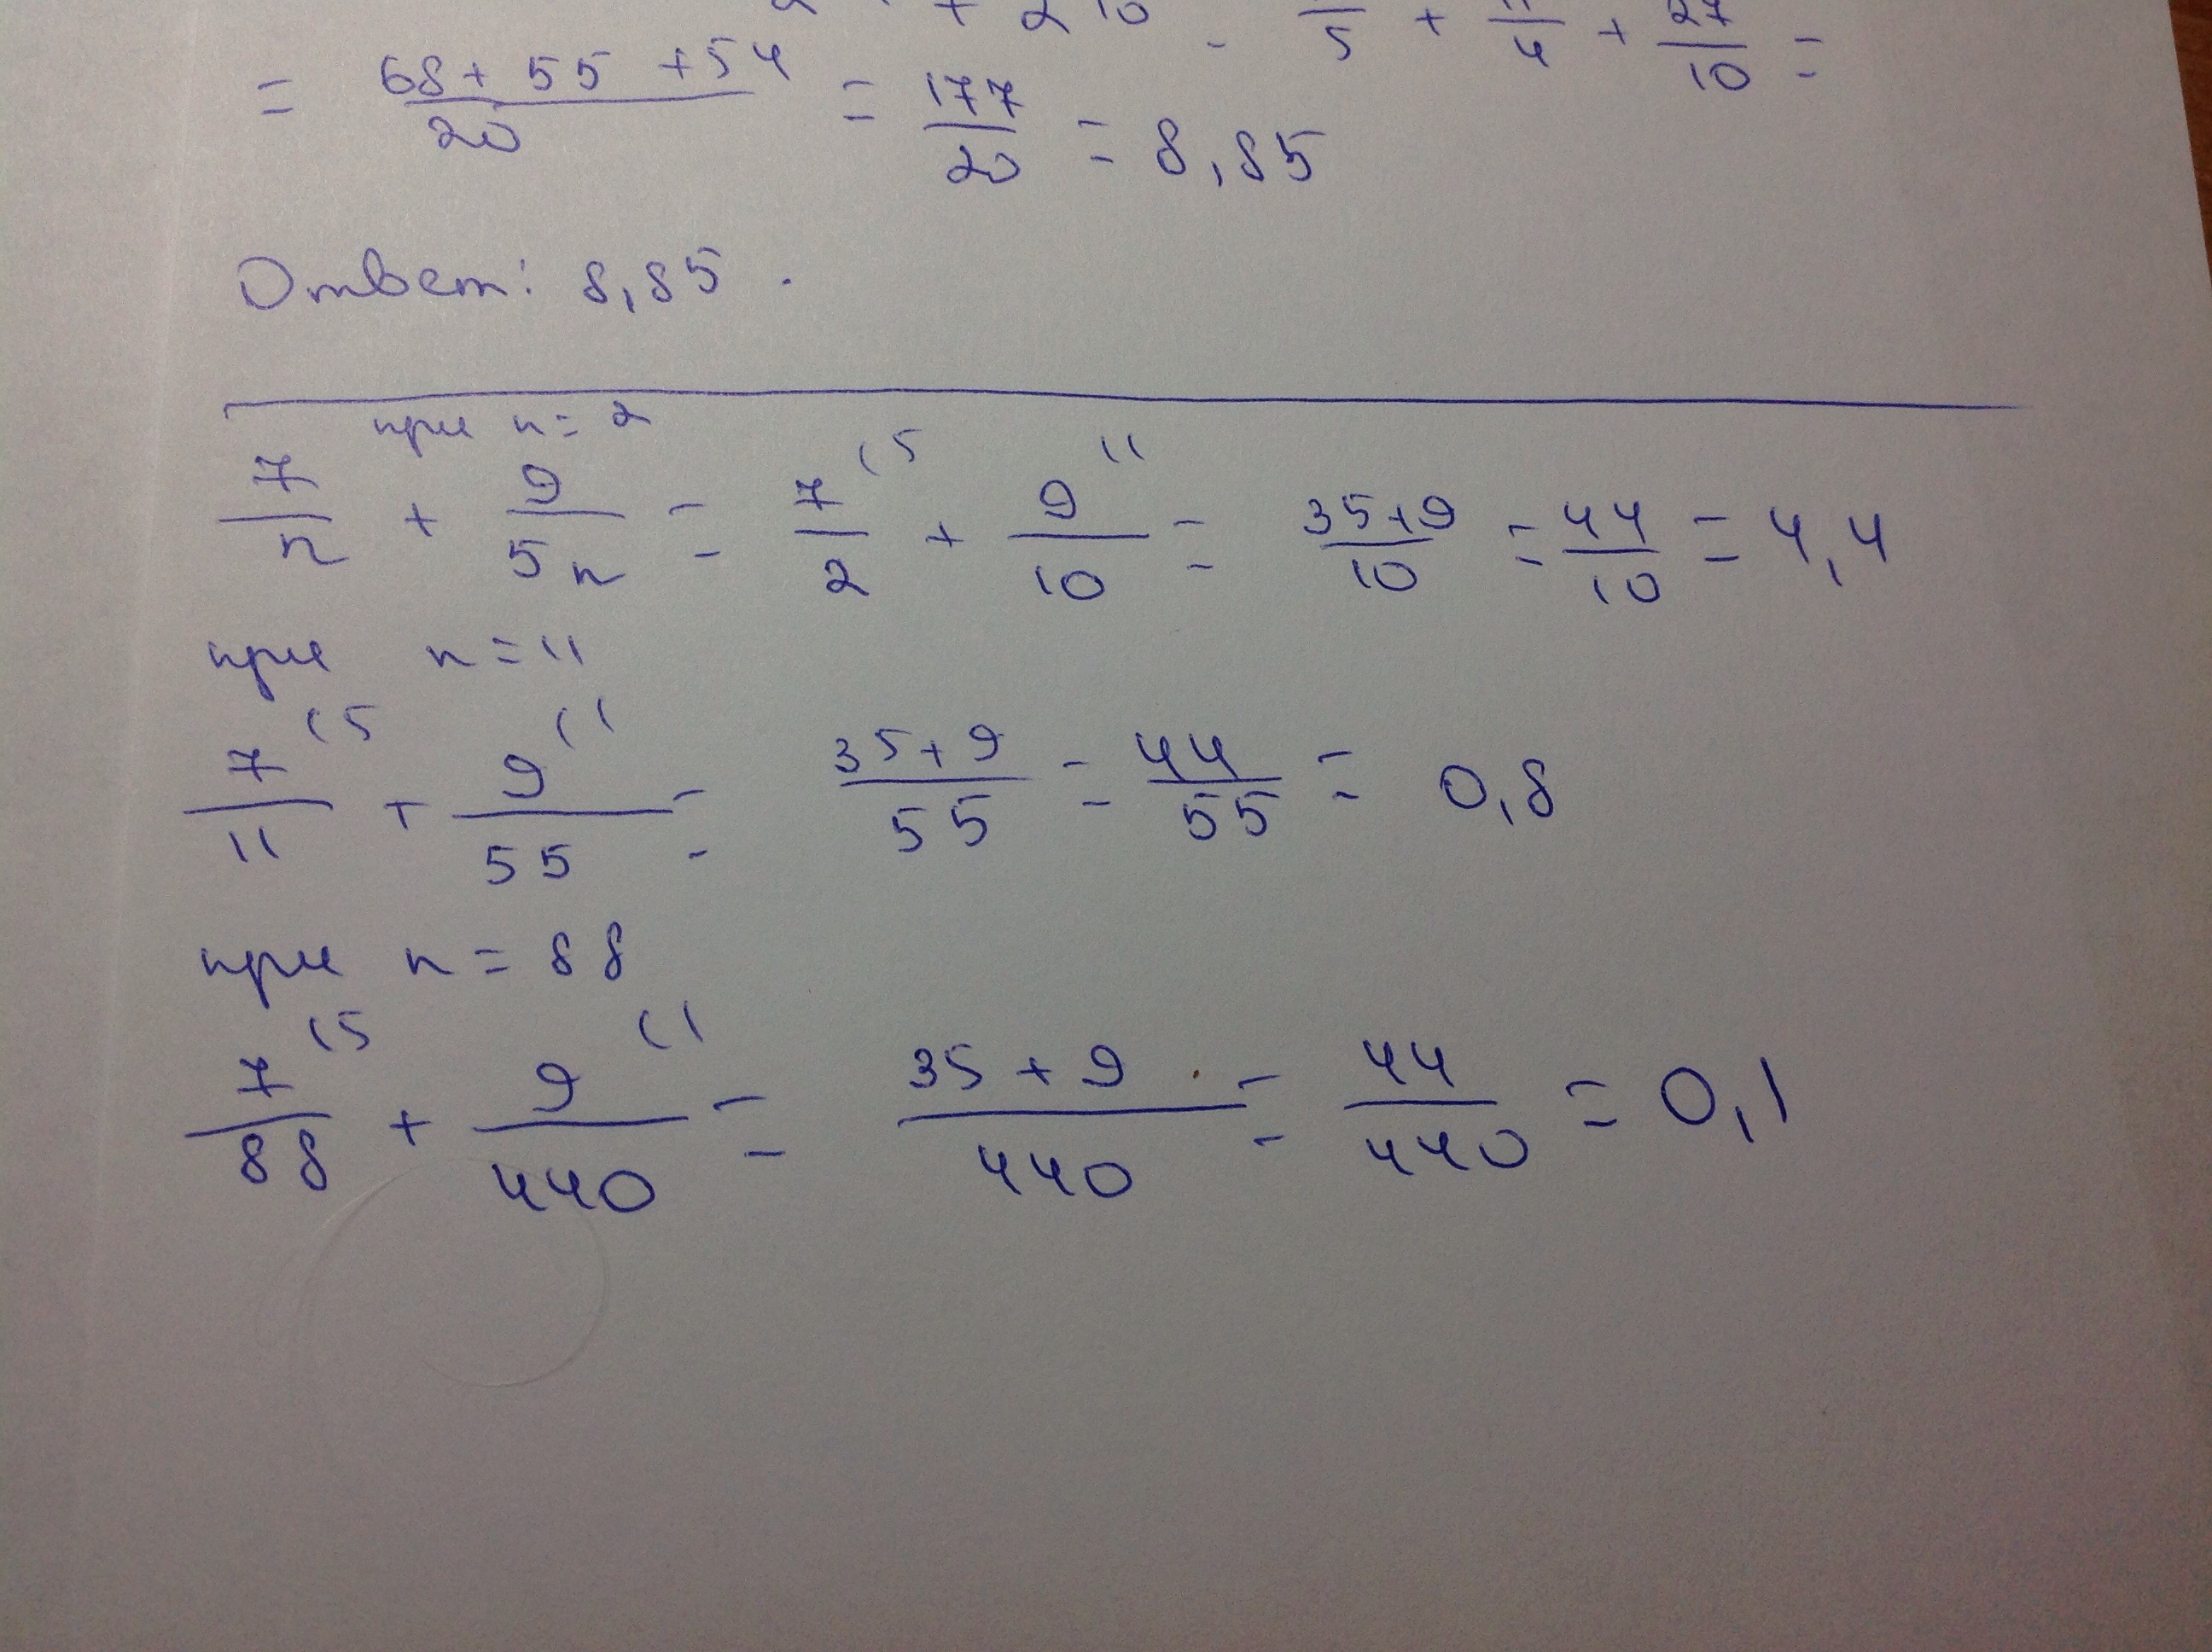 + 2 10 = /5 + 11/4 + 27/10 =
= (68 + 55 + 54)/20 = 177/20 = 8,85
Ответ: 8,85.
при n = 2
7/n + 9/5n = 7/2 (5 + 9/10 (1 = (35+9)/10 = 44/10 = 4,4
при n = 11
7/11 (5 + 9/55 (1 = (35+9)/55 = 44/55 = 0,8
при n = 88
7/88 (5 + 9/440 (1 = (35 + 9)/440 = 44/440 = 0,1